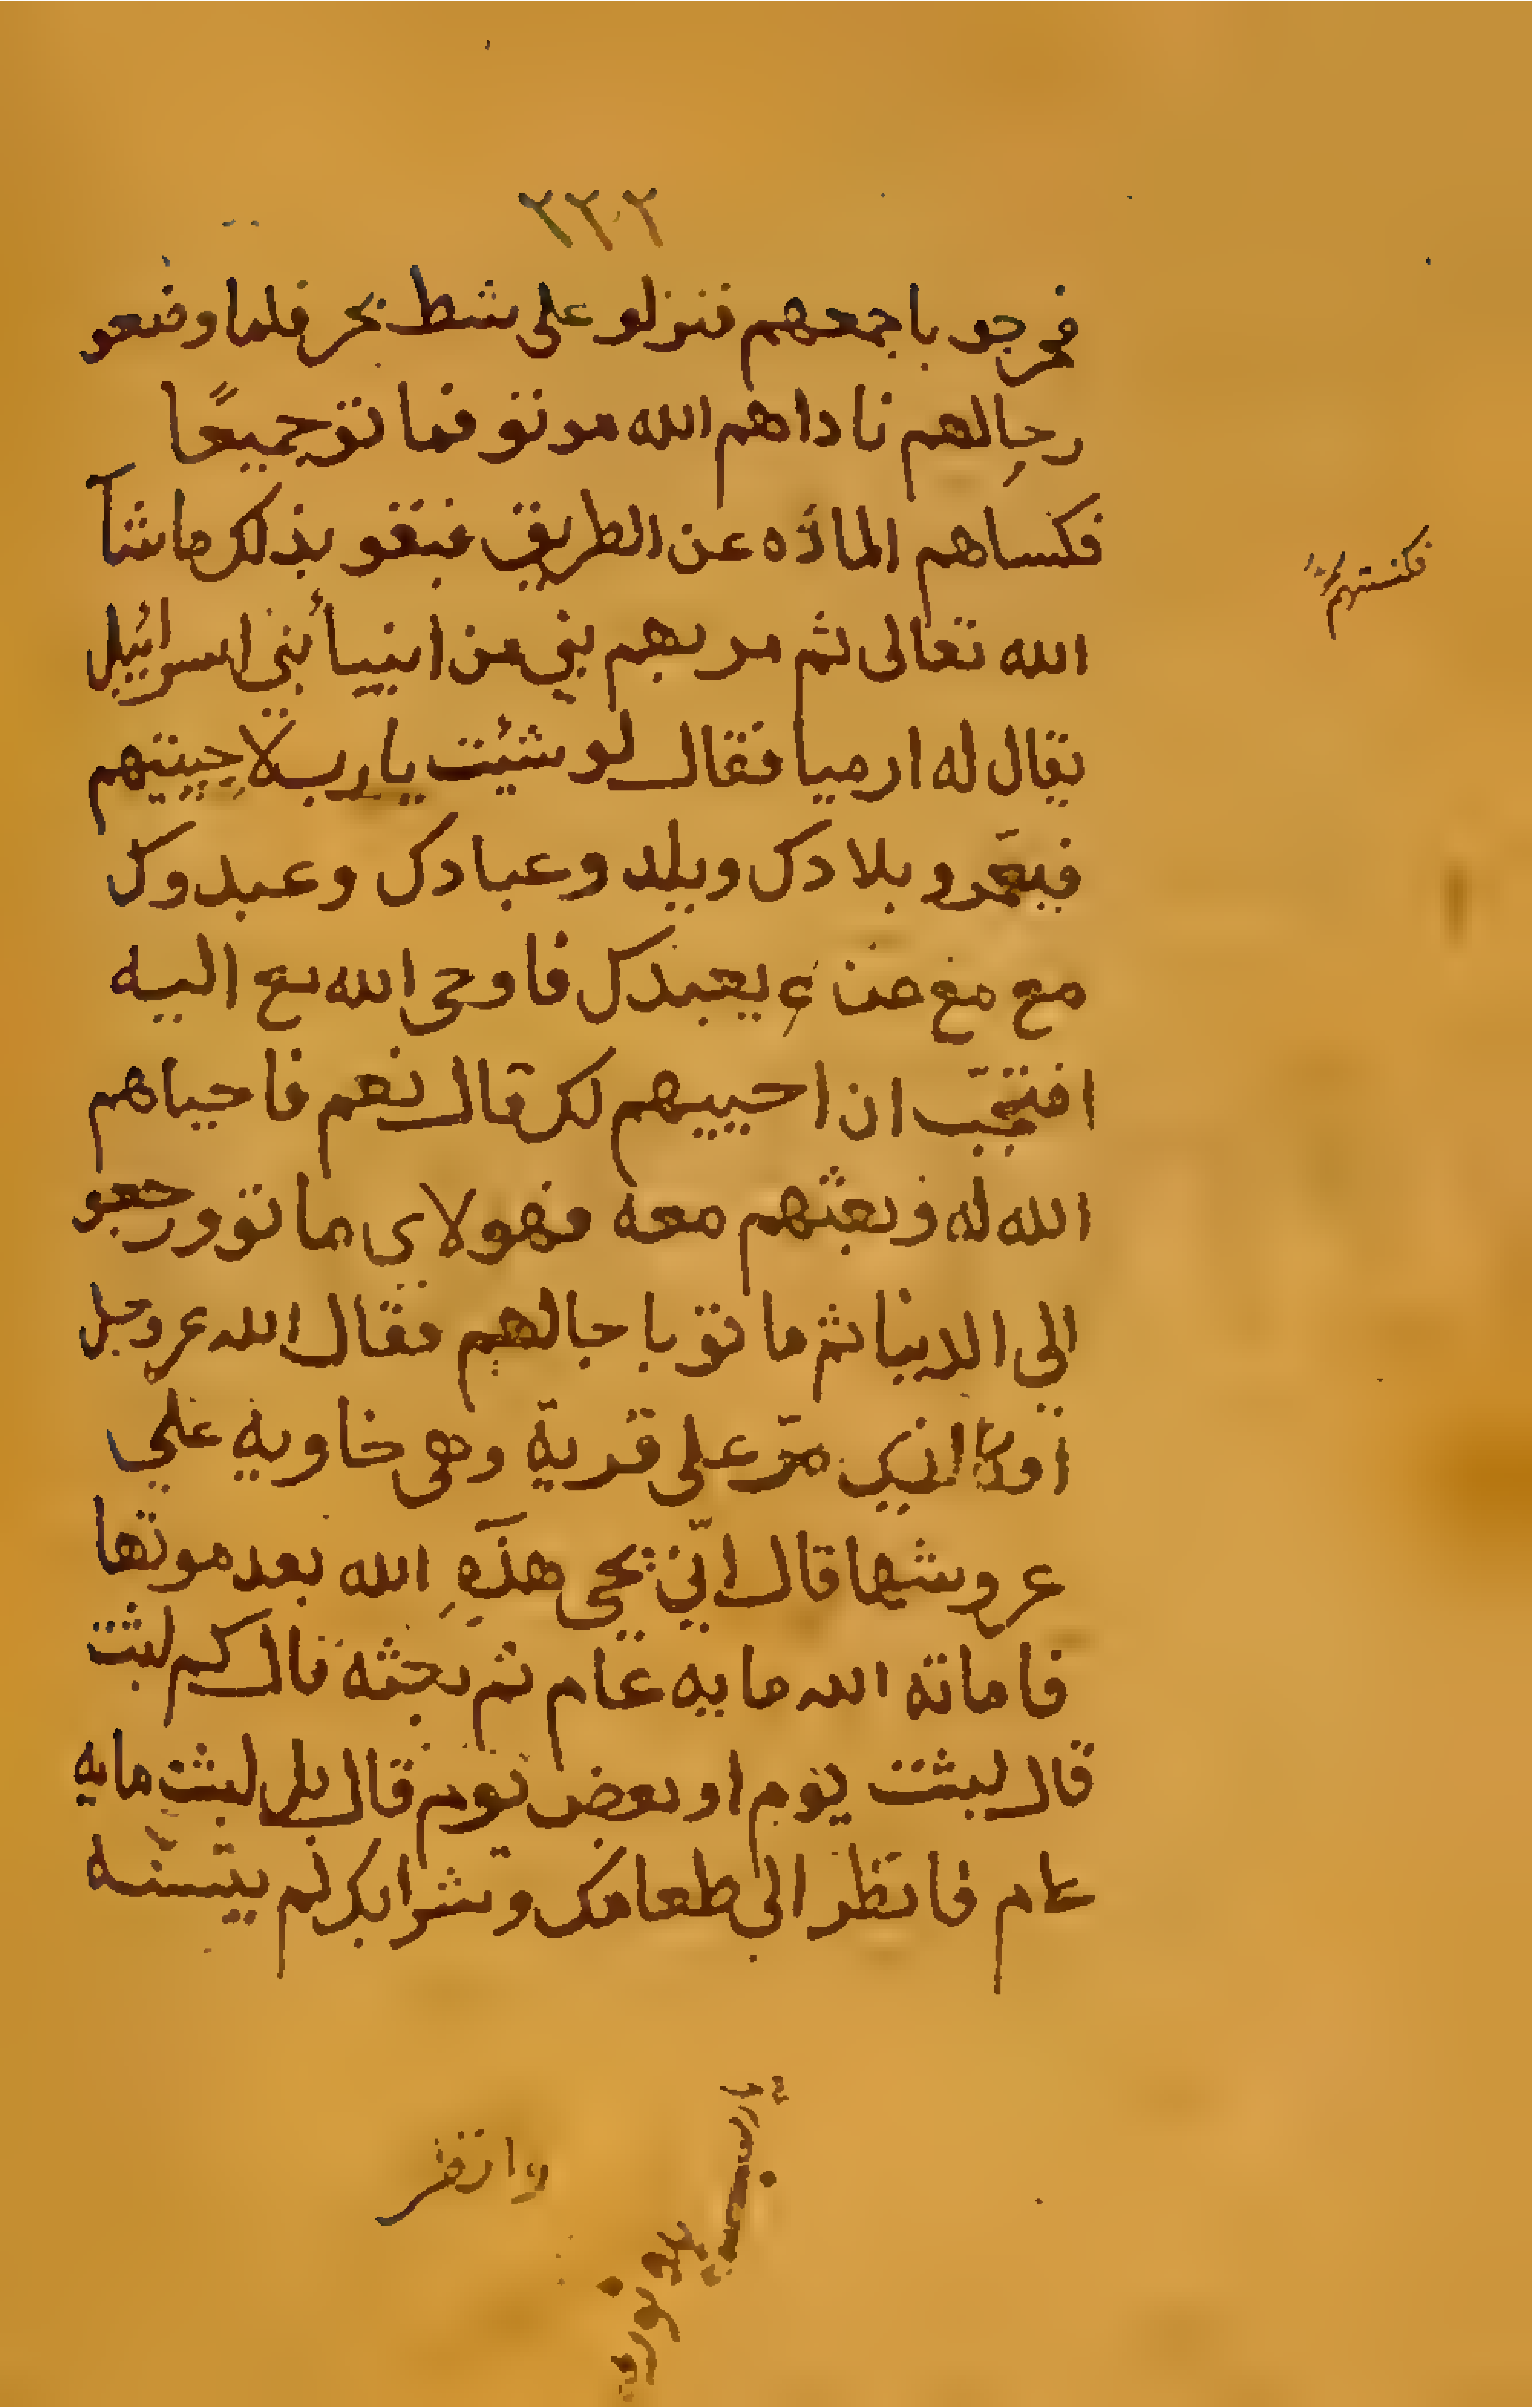 ٢٢٢
فخرجو باجمعهم فنزلو على شط بحر فلما وضعو
رحالهم ناداهم الله موتو فماتو جميعًا
فكنستهم
فكنساهم الماذه عن الطريق فبقو بذلك ماشآ
الله تعالى ثم مر بهم نبي من انبيأ بني اسرائيل
يقال له ارميا فقال لو شئت يا رب لاحييتهم
فيعمرو بلادك ويلد وعبادك وعبدوك
مع مع من يعبدك فاوحى الله تع اليه
افتحبّ ان احييهم لك قال نعم فاحياهم
الله له وبعثهم معه فهولاى ماتو ورجعو
الى الدنيا ثم ماتو باجالهم فقال الله عز وجل
اوكا الذي مرّ على قرية وهى خاوية على
عروشها قال انّي يحيى هذه الله بعد موتها
فاماته الله مايه عام ثم بعثه قال كم لبثت
قال لبثت يوم او بعض يوم قال بل لبثت مايه
عام فانظر الى طعامك وشرابك لم يتسنه
وانظر